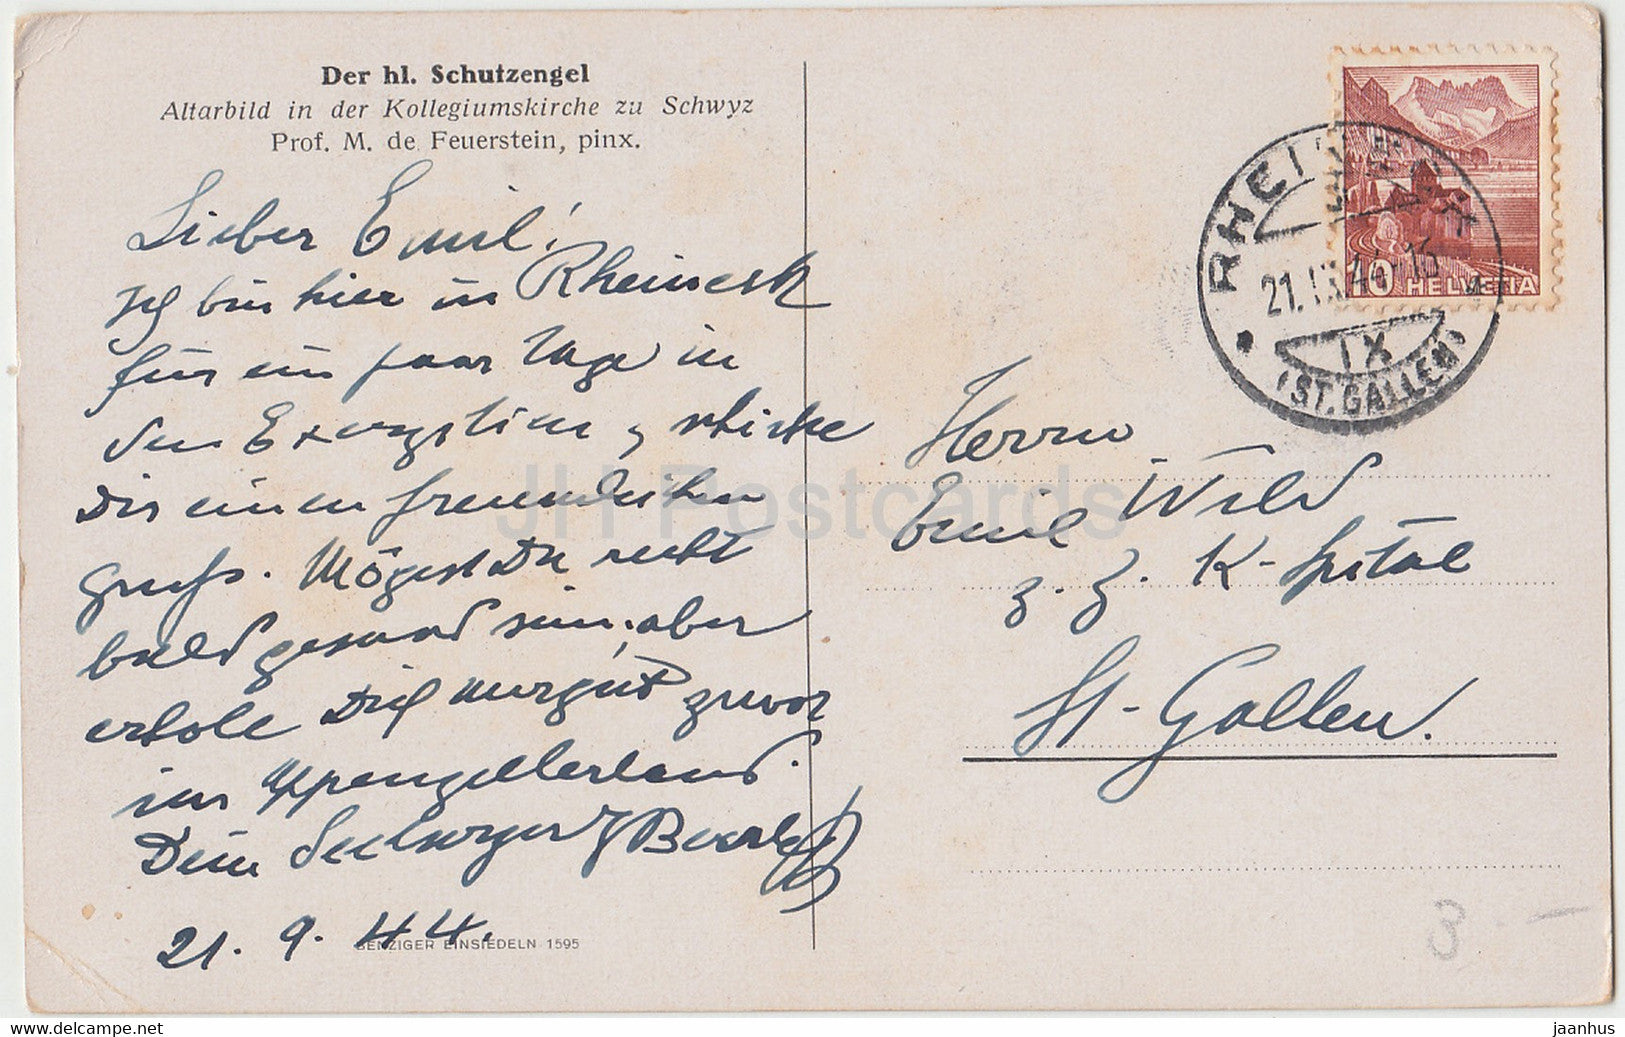 Der hl. Schutzengel
Altarbild in der Kollegiumskirche zu Schwyz
Prof. M. de Feuerstein, pinx.
Lieber Emil!
Ich bin hier in Rheineck
für ein paar Tage in
den Exerzitien, schicke
Dir einen freundlichen
Gruß. Mögest Du recht
bald gesund sein; aber
erhole Dich nur gut zuvor
im Appenzellerland.
Dein Seelsorger
21. 9. 44.
BENZIGER EINSIEDELN 1595
HELVETIA
10
RHEINECK
21.IX.44-16
IX
(ST. GALLEN)
Herrn
Emil Wild
z. Z. K-Spital
St-Gallen.
3.-
JH Postcards
www.delcampe.net
jaanhus